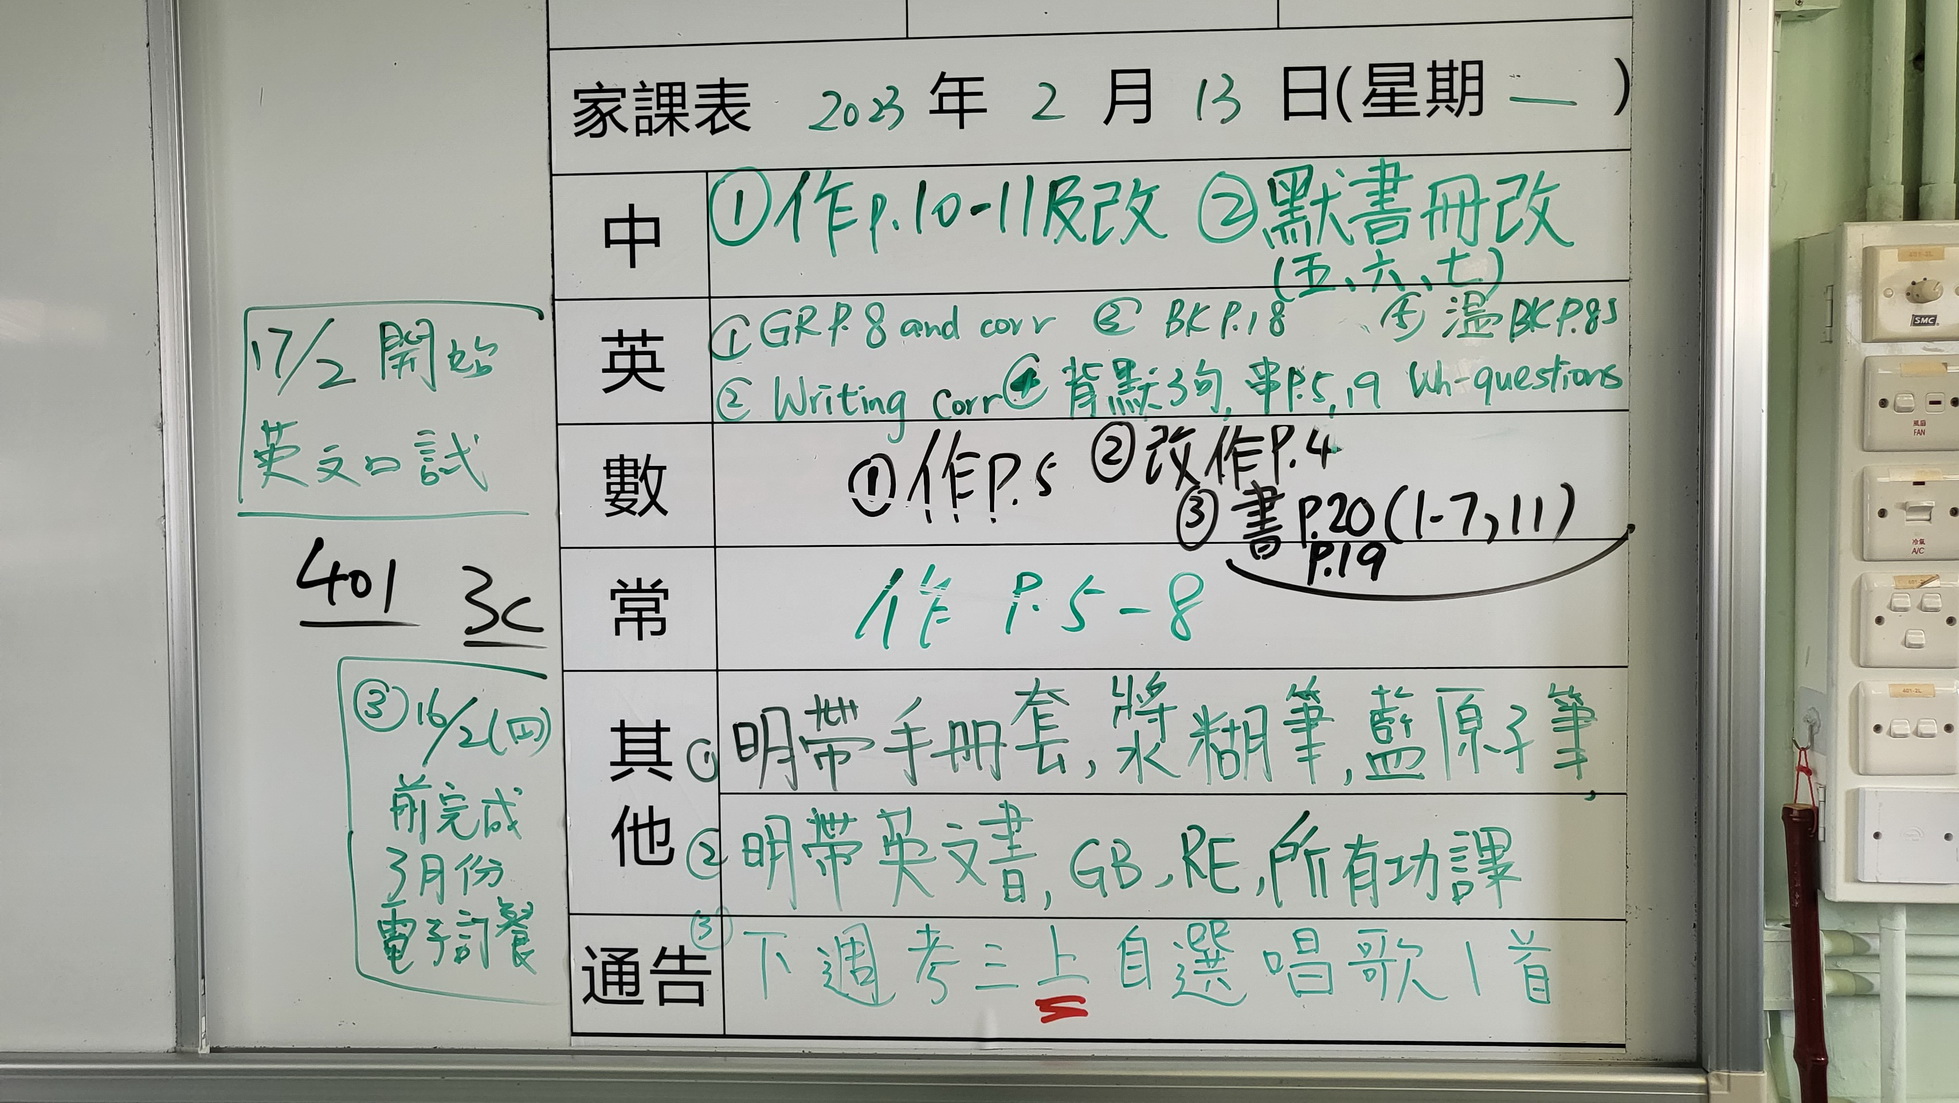 家課表 2023 年 2 月 13 日(星期一)
中 ①作P.10-11及改 ②默書冊改
(五、六、七)
英 ①GR P.8 and corr ③ BK P.18 ⑤ 溫BK P.85
② Writing corr ④ 背默3句, 串P.5, 19 Wh-questions
數 ①作P.5 ②改作P.4
③書P.20(1-7,11)
P.19
常 作 P.5-8
其他 ①明帶手冊套,漿糊筆,藍原子筆,
②明帶英文書, GB, RE, 所有功課
通告 ③下週考三上自選唱歌1首
17/2 開始
英文口試
401 3C
③16/2(四)
前完成
3月份
電子訂餐
SMC
風扇
FAN
冷氣
A/C